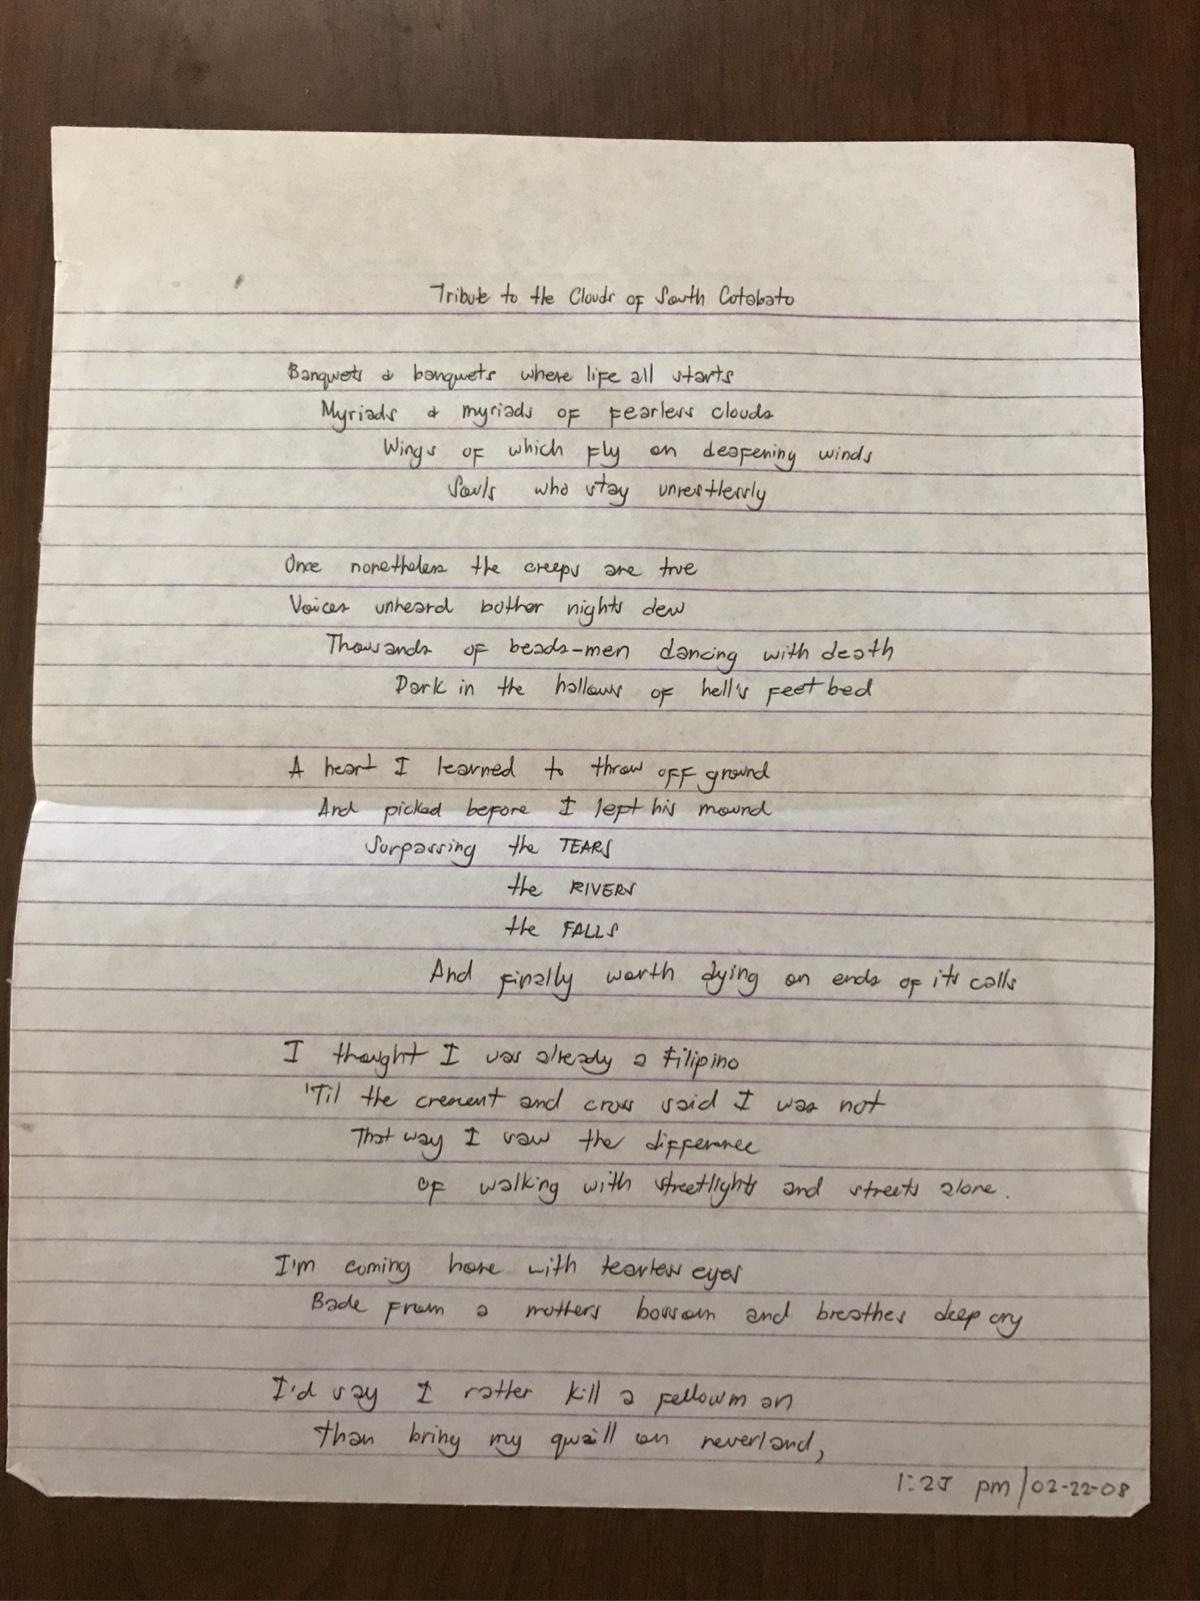 Tribute to the Clouds of South Cotabato
Banquets & banquets where life all starts
Myriads & myriads of fearless clouds
Wings of which fly on deafening winds
Souls who stay unrestlessly
Once nonetheless the creeps are true
Voices unheard bother nights dew
Thousands of beads-men dancing with death
Dark in the hollows of hell's feet bed
A heart I learned to throw off ground
And picked before I left his mound
Surpassing the TEARS
the RIVERS
the FALLS
And finally worth dying on ends of its calls
I thought I was already a Filipino
'Til the crescent and cross said I was not
That way I saw the difference
of walking with streetlights and streets alone.
I'm coming home with tearless eyes
Bade from a mothers bossom and breathes deep cry
I'd say I rather kill a fellowman
than bring my quaill on neverland,
1:25 pm/02-22-08